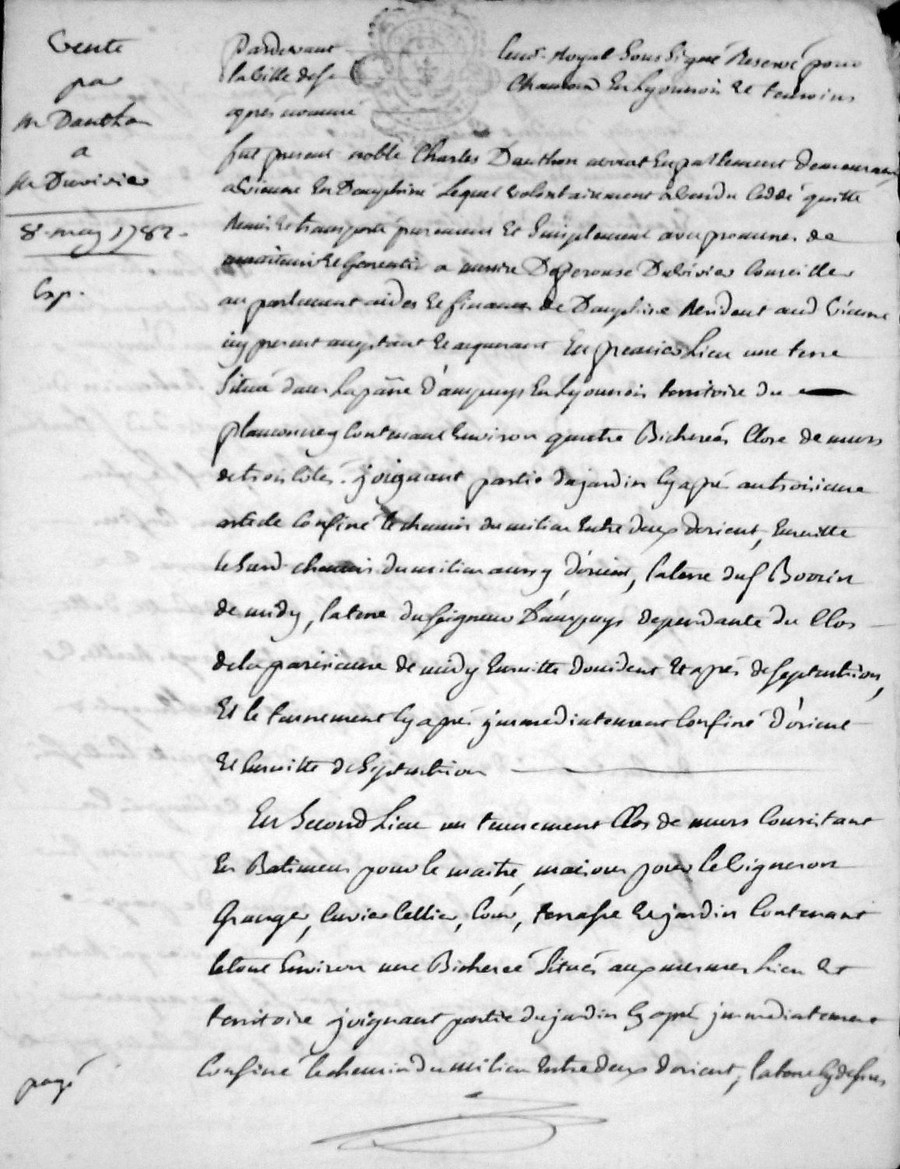 Vente
par
mr Dauthon
a
mr Duvivier
8. may 1782.
Exp.
Pardevant Royal Sous Signé Reservé pour
la ville de St Chamond En Lyonnois Et temoins
apres nommé
fut present noble Charles Dauthon avocat En parlement demeurant
a Vienne En Dauphiné Lequel volontairement a vendu Ceddé quitté
Remis Et transporté purement Et Simplement avec promesses de
maintenir Et Garentir a messire Duvivier Conseiller
au parlement aides Et finances de Dauphiné Resident aud Vienne
icy present acceptant Et aquerant En premier Lieu une terre
Située dans La parse d'ampuys En Lyonnois territoire du
Contenant Environ quatre Bicherées Close de murs
de trois Cotés. joignant partie du jardin Cy aprés au troisieme
article Confiné le chemin du milieu Entre deux d'orient, Ensuitte
le Susd chemin du milieu aussy d'orient, la terre du Sr
de midy, la terre du Seigneur D'ampuys dependante du Clos
de la de midy Ensuitte d'occident Et aprés de Septentrion,
Et le tennement Cy aprés jmmediatement Confiné d'orient
Et Ensuitte de Septentrion
En Second Lieu un tennement Clos de murs Consistant
En Batiment pour le maitre, maison pour le Vigneron
Grange, Cuvier Cellier, Cour, terrasse Et jardin Contenant
le tout Environ une Bicherée Situés aux mesmes Lieu Et
territoire joignant partie du jardin Cy aprés jmmediatement
Confiné le chemin du milieu Entre deux d'orient, la terre Cy dessus
payé